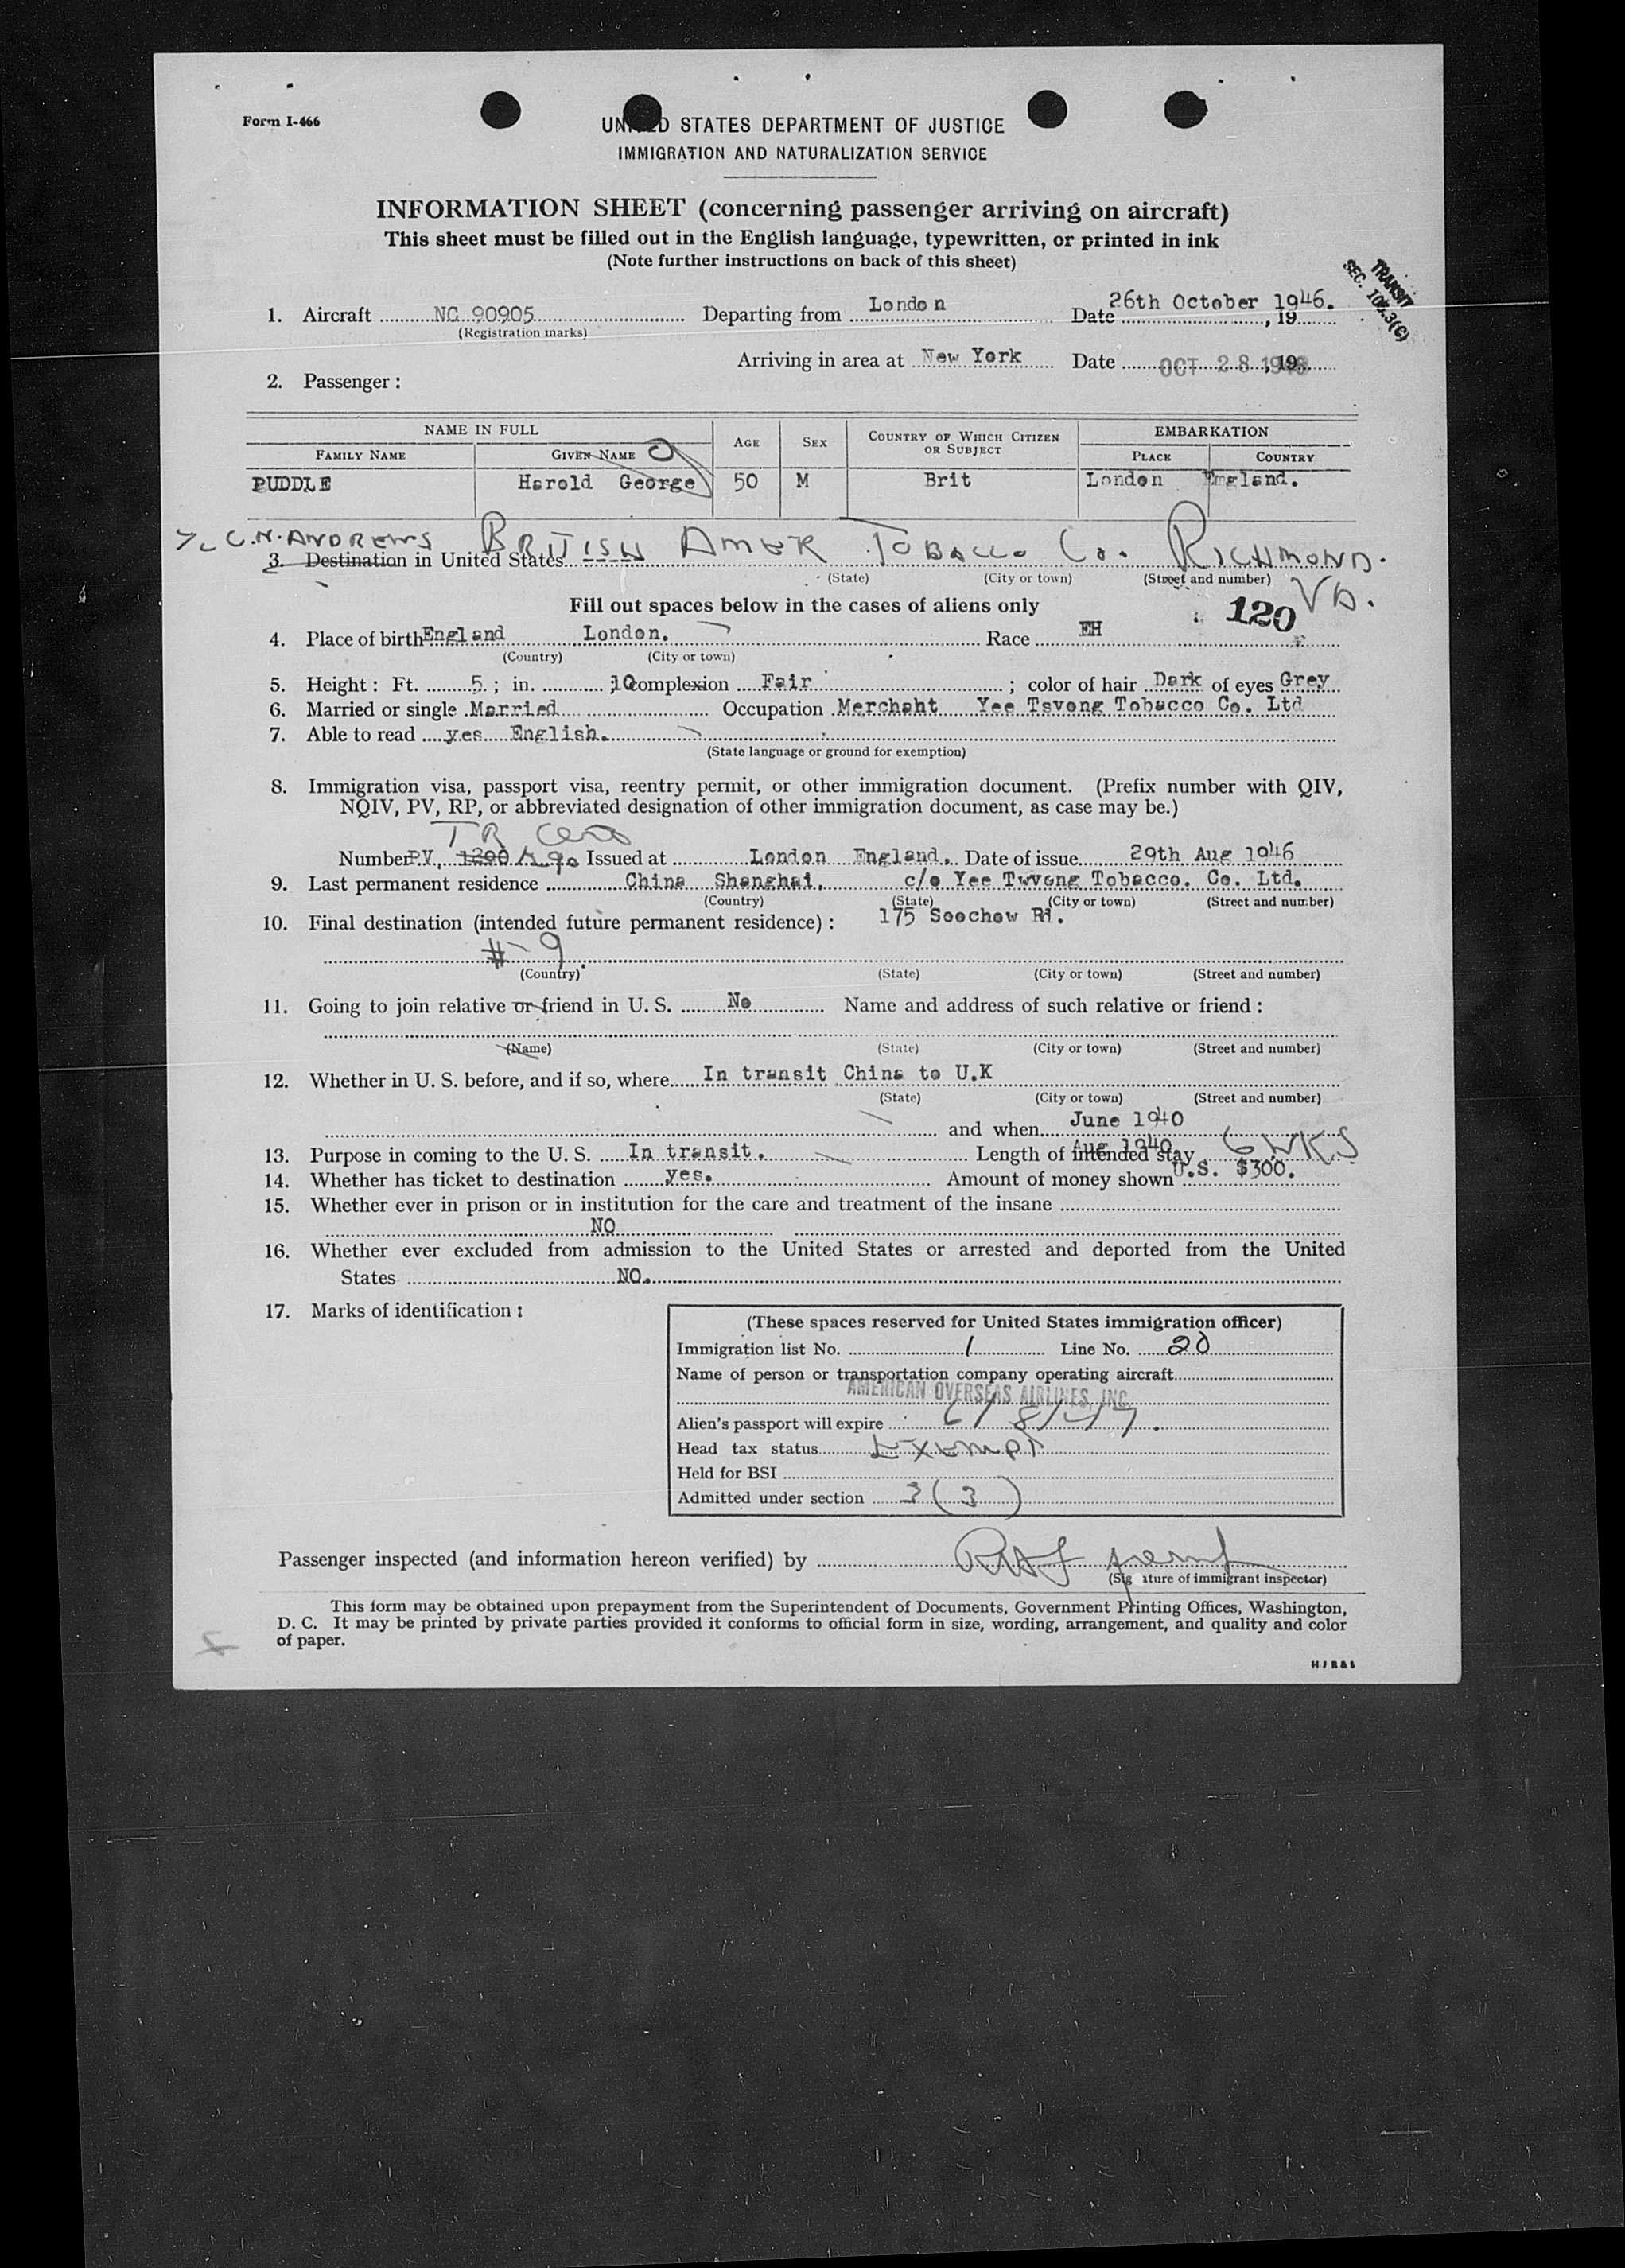 Form I-466
UNITED STATES DEPARTMENT OF JUSTICE
IMMIGRATION AND NATURALIZATION SERVICE
INFORMATION SHEET (concerning passenger arriving on aircraft)
This sheet must be filled out in the English language, typewritten, or printed in ink
(Note further instructions on back of this sheet)
TRANSIT
SEC. 105.3(C)
1. Aircraft NC 90905 Departing from London Date 26th October 1946. , 19
(Registration marks)
Arriving in area at New York Date OCT 28 1946 , 19
2. Passenger :
NAME IN FULL AGE SEX COUNTRY OF WHICH CITIZEN OR SUBJECT EMBARKATION
FAMILY NAME GIVEN NAME PLACE COUNTRY
PUDDLE Harold George 50 M Brit London England.
C.N. ANDREWS BRITISH AMER TOBACCO Co. RICHMOND.
3. Destination in United States
(State) (City or town) (Street and number)
VA.
Fill out spaces below in the cases of aliens only
120
4. Place of birth England London. Race EH
(Country) (City or town)
5. Height : Ft. 5 ; in. 10 ; complexion Fair ; color of hair Dark of eyes Grey
6. Married or single Married Occupation Merchant Yee Tsvong Tobacco Co. Ltd
7. Able to read yes English.
(State language or ground for exemption)
8. Immigration visa, passport visa, reentry permit, or other immigration document. (Prefix number with QIV,
NQIV, PV, RP, or abbreviated designation of other immigration document, as case may be.)
TR
Number PV, 1200 Issued at London England. Date of issue 29th Aug 1946
9. Last permanent residence China Shanghai. c/o Yee Twvong Tobacco. Co. Ltd.
(Country) (State) (City or town) (Street and number)
10. Final destination (intended future permanent residence) : 175 Soochow Rd.
# 9
(Country) (State) (City or town) (Street and number)
11. Going to join relative or friend in U. S. No Name and address of such relative or friend :
(Name) (State) (City or town) (Street and number)
12. Whether in U. S. before, and if so, where In transit China to U.K
(State) (City or town) (Street and number)
and when June 1940
Aug 1940
13. Purpose in coming to the U. S. In transit. Length of intended stay 6 WKS
14. Whether has ticket to destination yes. Amount of money shown U.S. $300.
15. Whether ever in prison or in institution for the care and treatment of the insane
NO
16. Whether ever excluded from admission to the United States or arrested and deported from the United
States NO.
17. Marks of identification :
(These spaces reserved for United States immigration officer)
Immigration list No. 1 Line No. 20
Name of person or transportation company operating aircraft
AMERICAN OVERSEAS AIRLINES, INC.
Alien's passport will expire 6/8/47.
Head tax status Exempt
Held for BSI
Admitted under section 3 (3)
Passenger inspected (and information hereon verified) by
(Signature of immigrant inspector)
This form may be obtained upon prepayment from the Superintendent of Documents, Government Printing Offices, Washington,
D. C. It may be printed by private parties provided it conforms to official form in size, wording, arrangement, and quality and color
of paper.